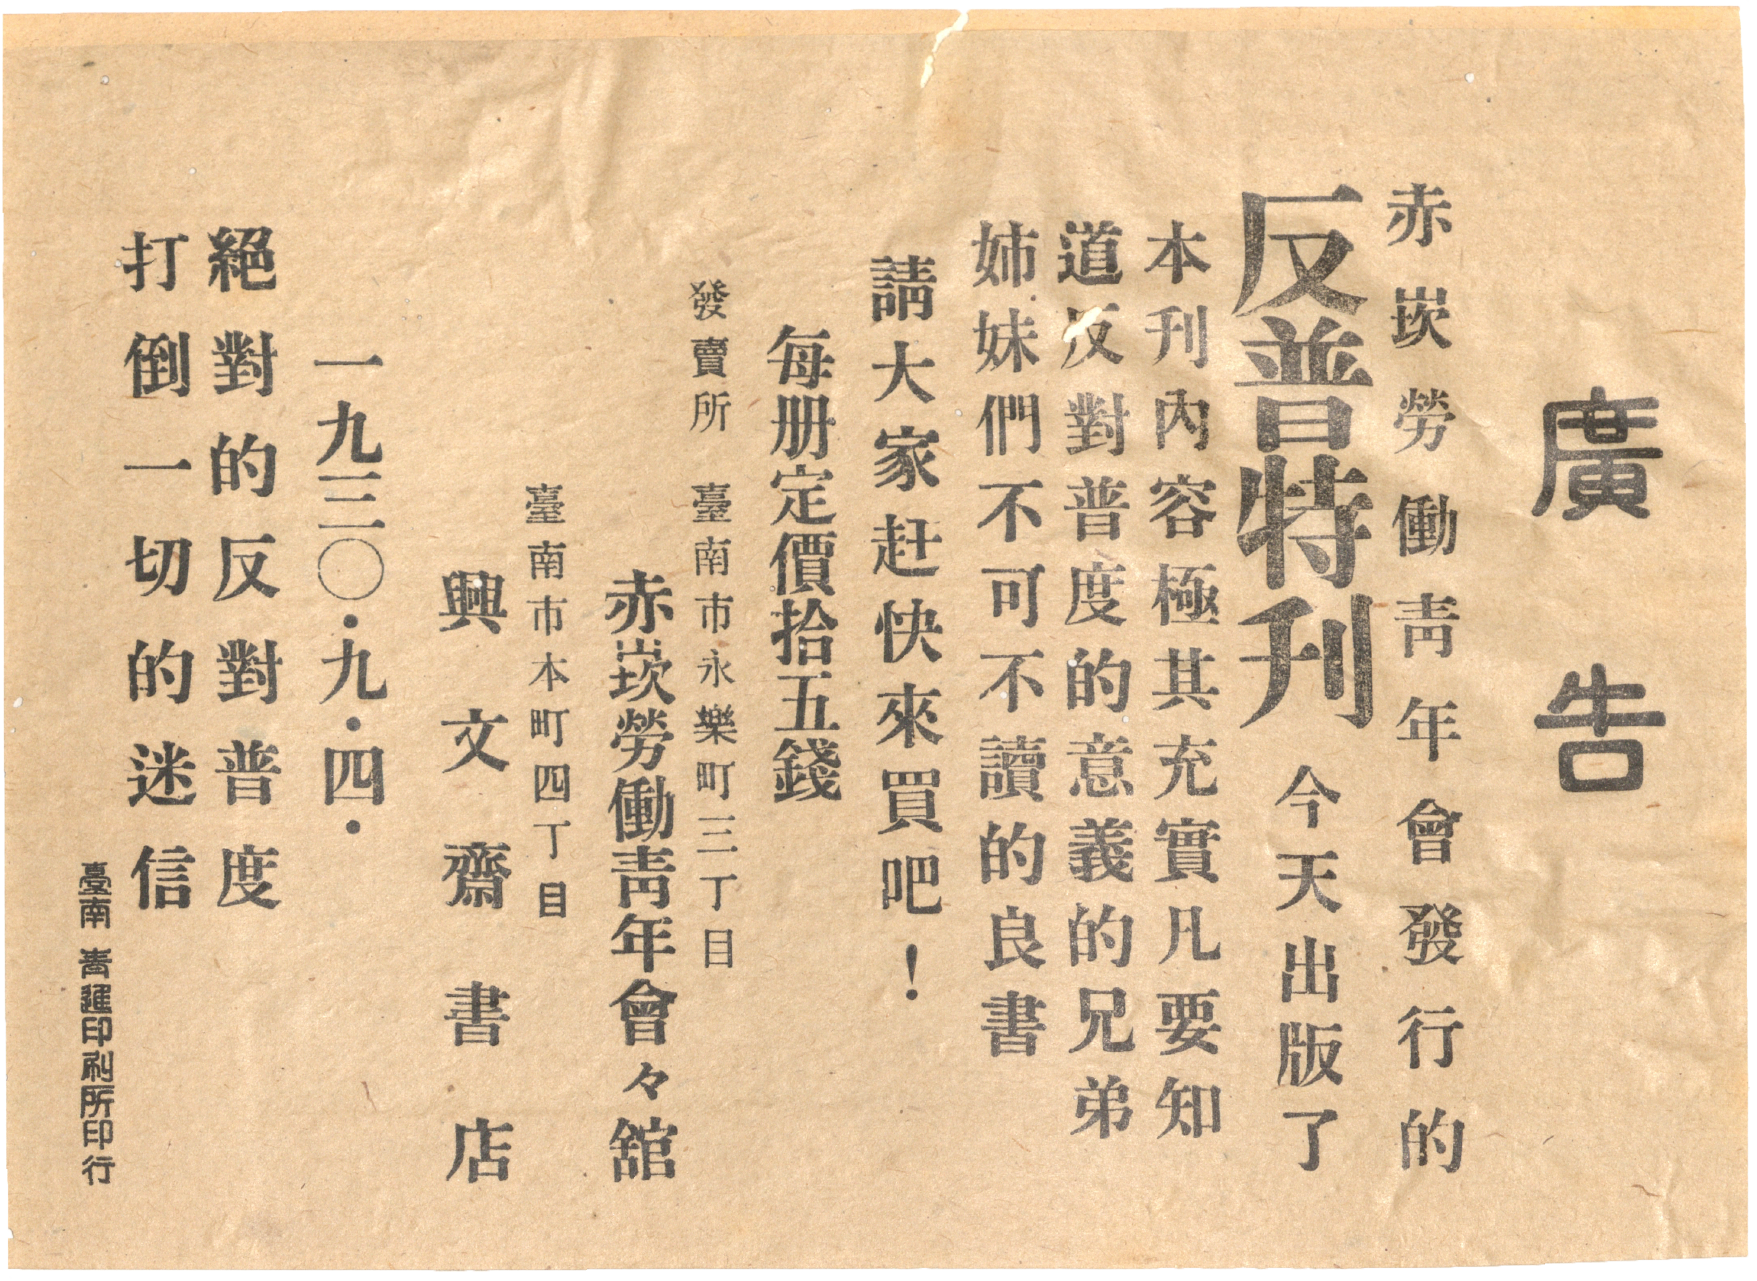 廣告
赤崁勞働靑年會發行的
反普特刊 今天出版了
本刊內容極其充實凡要知
道反對普度的意義的兄弟
姉妹們不可不讀的良書
請大家赶快來買吧！
每册定價拾五錢
發賣所 臺南市永樂町三丁目
赤崁勞働靑年會々舘
臺南市本町四丁目
興文齋書店
一九三〇・九・四・
絕對的反對普度
打倒一切的迷信
臺南 靑進印刷所印行